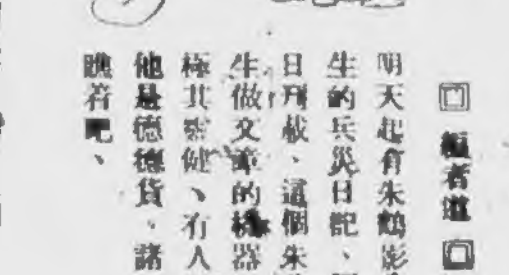 編者壇
明天起有朱鶴影
生的兵災日記、
日刊載、這個朱
生做文章的機器
極其密健、有人
他是德德貨、諸
瞧着吧、